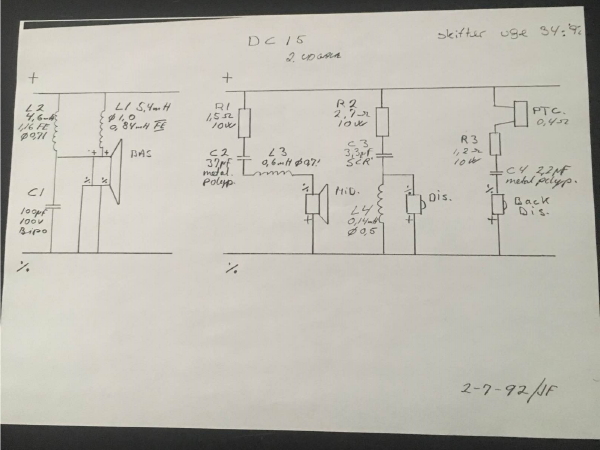 DC 15
skifter uge 34:
2.
+
+
L2
4,6mH
1,16 FE
Ø0,71
L1 5,4mH
Ø1,0
0,84mH FE
+ +
BAS
%
%
C1
100µf
100V
Bipo
%
R1
1,5Ω
10W
C2
37µf
metal.
polyp.
L3
0,6mH Ø0,71
%
MiD.
+
R2
2,7Ω
10W
C3
3,3µf
SCR
L4
0,14mH
Ø0,5
%
Dis.
+
PTC.
0,4Ω
R3
1,2Ω
10W
C4 2,2µF
metal polyp.
%
Back
Dis.
+
%
2-7-92/JF